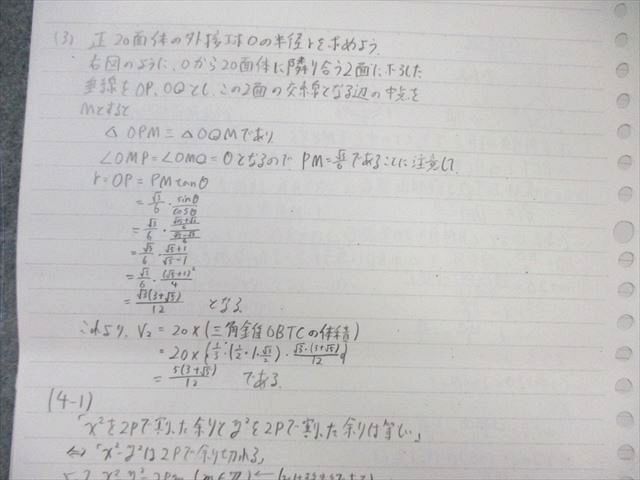 (3) 正20面体の外接球Oの半径rを求めよう.
右図のように, Oから20面体に隣り合う2面に下ろした
垂線をOP, OQとし, この2面の交線となる辺の中点を
Mとすると
△OPM≡△OQMであり
∠OMP=∠OMQ=θとなるので PM=√3/6であることに注意して,
r=OP=PM tanθ
=√3/6・sinθ/cosθ
=√3/6・
=√3/6・(√5+1)/(√5-1)
=√3/6・(√5+1)²/4
=√3(3+√5)/12 となる.
これより, V₂=20×(三角錐OBTCの体積)
=20×{1/3・(1/2・1・√3/2)・√3・(3+√5)/12}
=5(3+√5)/12 である.
(4-1)
「x²を2Pで割った余りとy²を2Pで割った余りは等しい」
⇔「x²-y²は2Pで余り切れる」
x²-y²=2Pm (m∈Z)